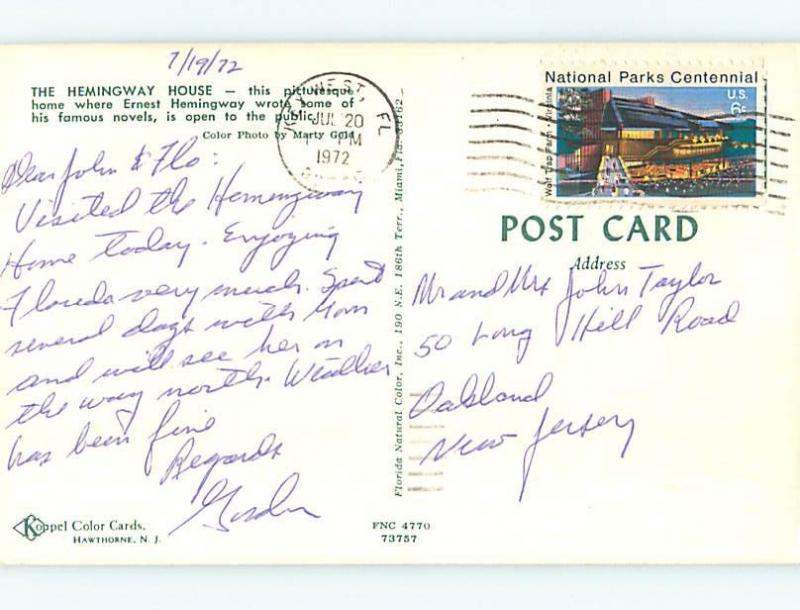 7/19/72
THE HEMINGWAY HOUSE — this picturesque
home where Ernest Hemingway wrote some of
his famous novels, is open to the public.
Color Photo by Marty Gold
Dear John & Flo:
Visited the Hemingway
Home today. Enjoying
Florida very much. Spent
several days with Mom
and will see her on
the way north. Weather
has been fine
Regards
Gordon
Koppel Color Cards,
HAWTHORNE, N. J.
FNC 4770
73757
Florida Natural Color, Inc., 190 N.E. 186th Terr., Miami, Fla. 33162
KEY WEST, FL
JUL 20
PM
1972
National Parks Centennial
U.S.
6c
Wolf Trap Farm · Virginia
POST CARD
Address
Mr and Mrs John Taylor
50 Long Hill Road
Oakland
New Jersey